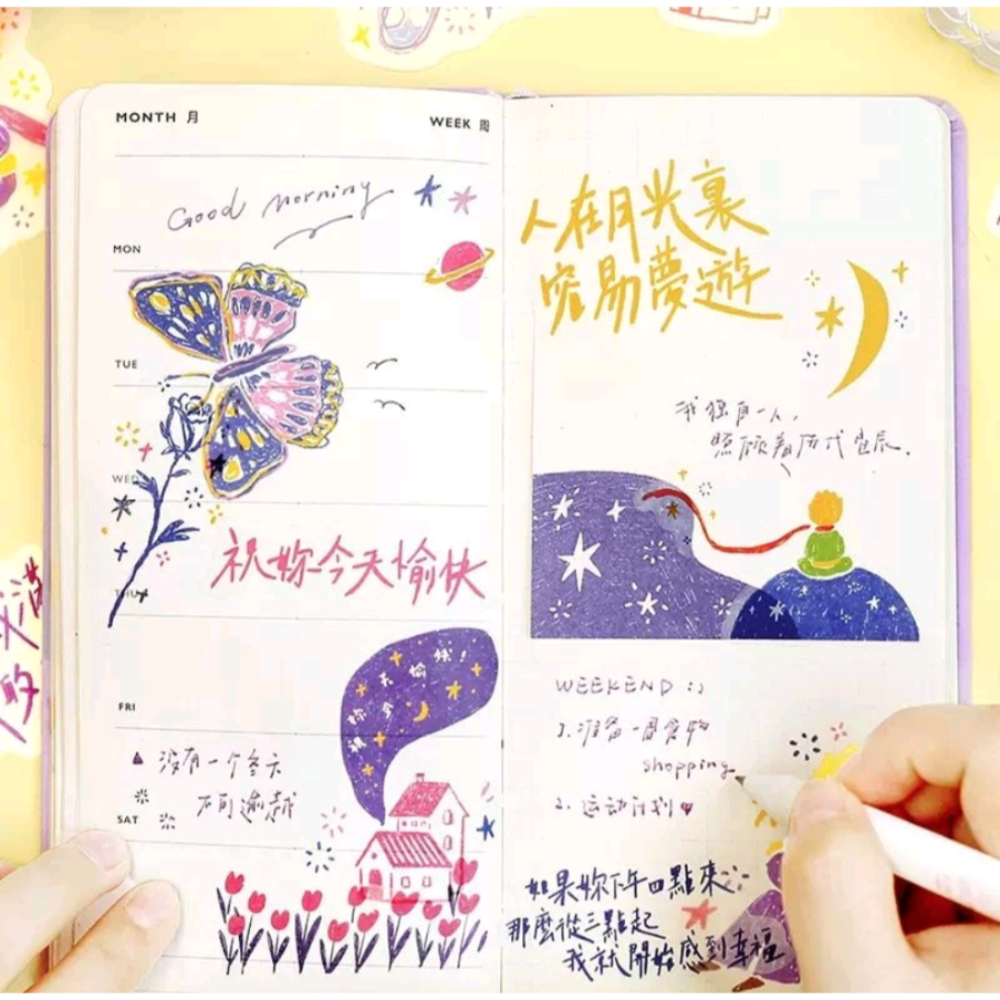 MONTH 月
WEEK 周
Good morning
MON
TUE
WED
祝妳今天愉快
THU
FRI
祝妳今天愉快!
▲ 没有一个冬天
不可逾越
SAT
人在月光裏
容易夢遊
我独自一人,
照顾着历代星辰.
WEEKEND :)
1. 准备一周食物
shopping
2. 运动计划♥
如果妳下午四點來
那麼從三點起
我就開始感到幸福